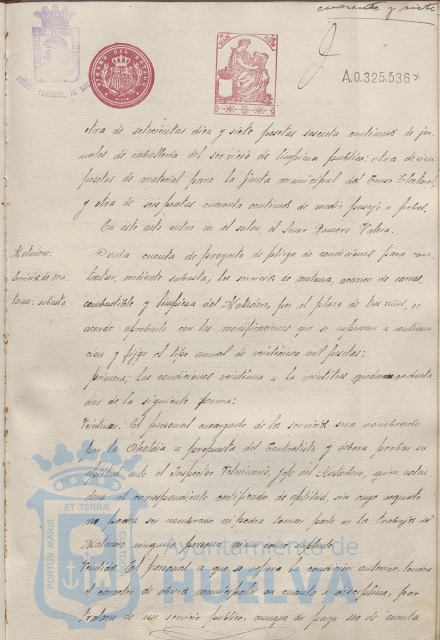 cuarenta y siete
A.0.325.536
otra de setecientas diez y siete pesetas sesenta centimos de jor-
nales de caballeria del servicio de limpieza publica; otra de cien
pesetas de material para la Junta municipal del Censo Electoral
y otra de seis pesetas cuarenta centimos de medio pasaje a pobres.
En este acto entra en el salon el Señor Romero Valera.
Matadero:
Servicios de ma-
tanza: subasta
Dada cuenta de proyecto de pliego de condiciones para con-
tratar, mediante subasta, los servicios de matanza, acarreo de carnes,
combustible y limpieza del Matadero, por el plazo de tres años, se
acordo aprobarlo con las modificaciones que se expresan a continua-
cion y fijar el tipo anual de veinticinco mil pesetas:
primera; las condiciones veintiuna a la quedan redacta
das de la siguiente forma:
Veintiuna. El personal encargado de los servicios sera nombrado
por la Alcaldia a propuesta del Contratista y debera probar su
aptitud ante el Inspector Veterinario, Jefe del Matadero, quien
el correspondiente certificado de aptitud, sin cuyo requisito
no podra ser nombrado ni podra tomar parte en los trabajos del
Matadero ninguna persona, ni aun como suplente.
El personal a que se refiere la condicion anterior tendra
el caracter de obrero municipal en cuanto a disciplina, por
tratarse de un servicio publico, aunque su pago sea de cuenta
ET TERRA
PORTUS MARIS
Ayuntamiento de
HUELVA